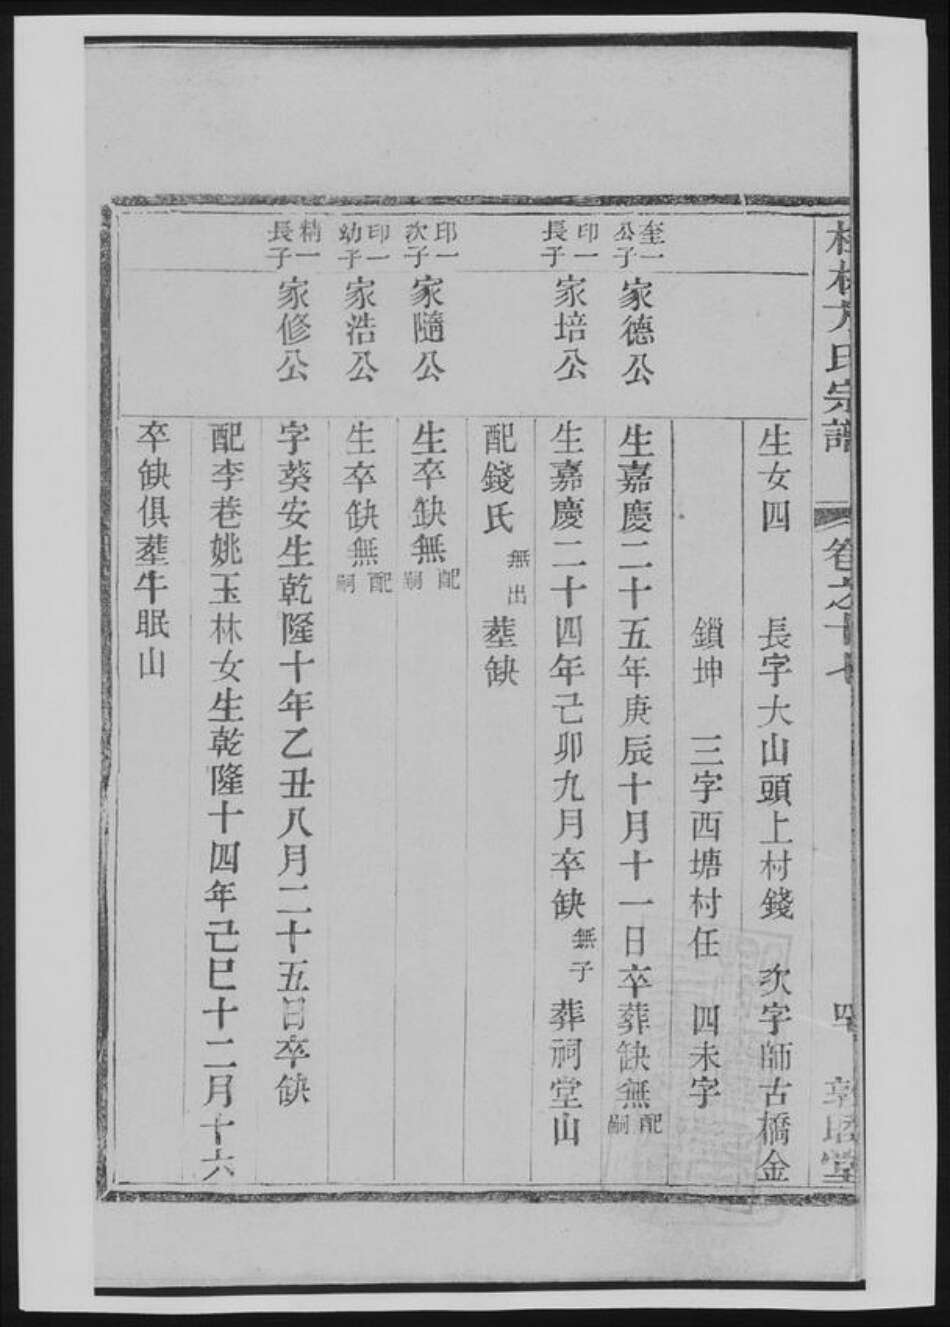 方氏宗譜 卷之十七 四
生女四 長字大山頭上村錢 次字師古橋金
鎖坤 三字西塘村任 四未字
奎一公子 家德公 生嘉慶二十五年庚辰十月十一日卒葬缺無配嗣
印一長子 家培公 生嘉慶二十四年己卯九月卒缺無子葬祠堂山
配錢氏無出葬缺
印一次子 家隨公 生卒缺無配嗣
印一幼子 家浩公 生卒缺無配嗣
精一長子 家修公 字葵安生乾隆十年乙丑八月二十五日卒缺
配李巷姚玉林女生乾隆十四年己巳十二月十六
卒缺俱葬牛眠山